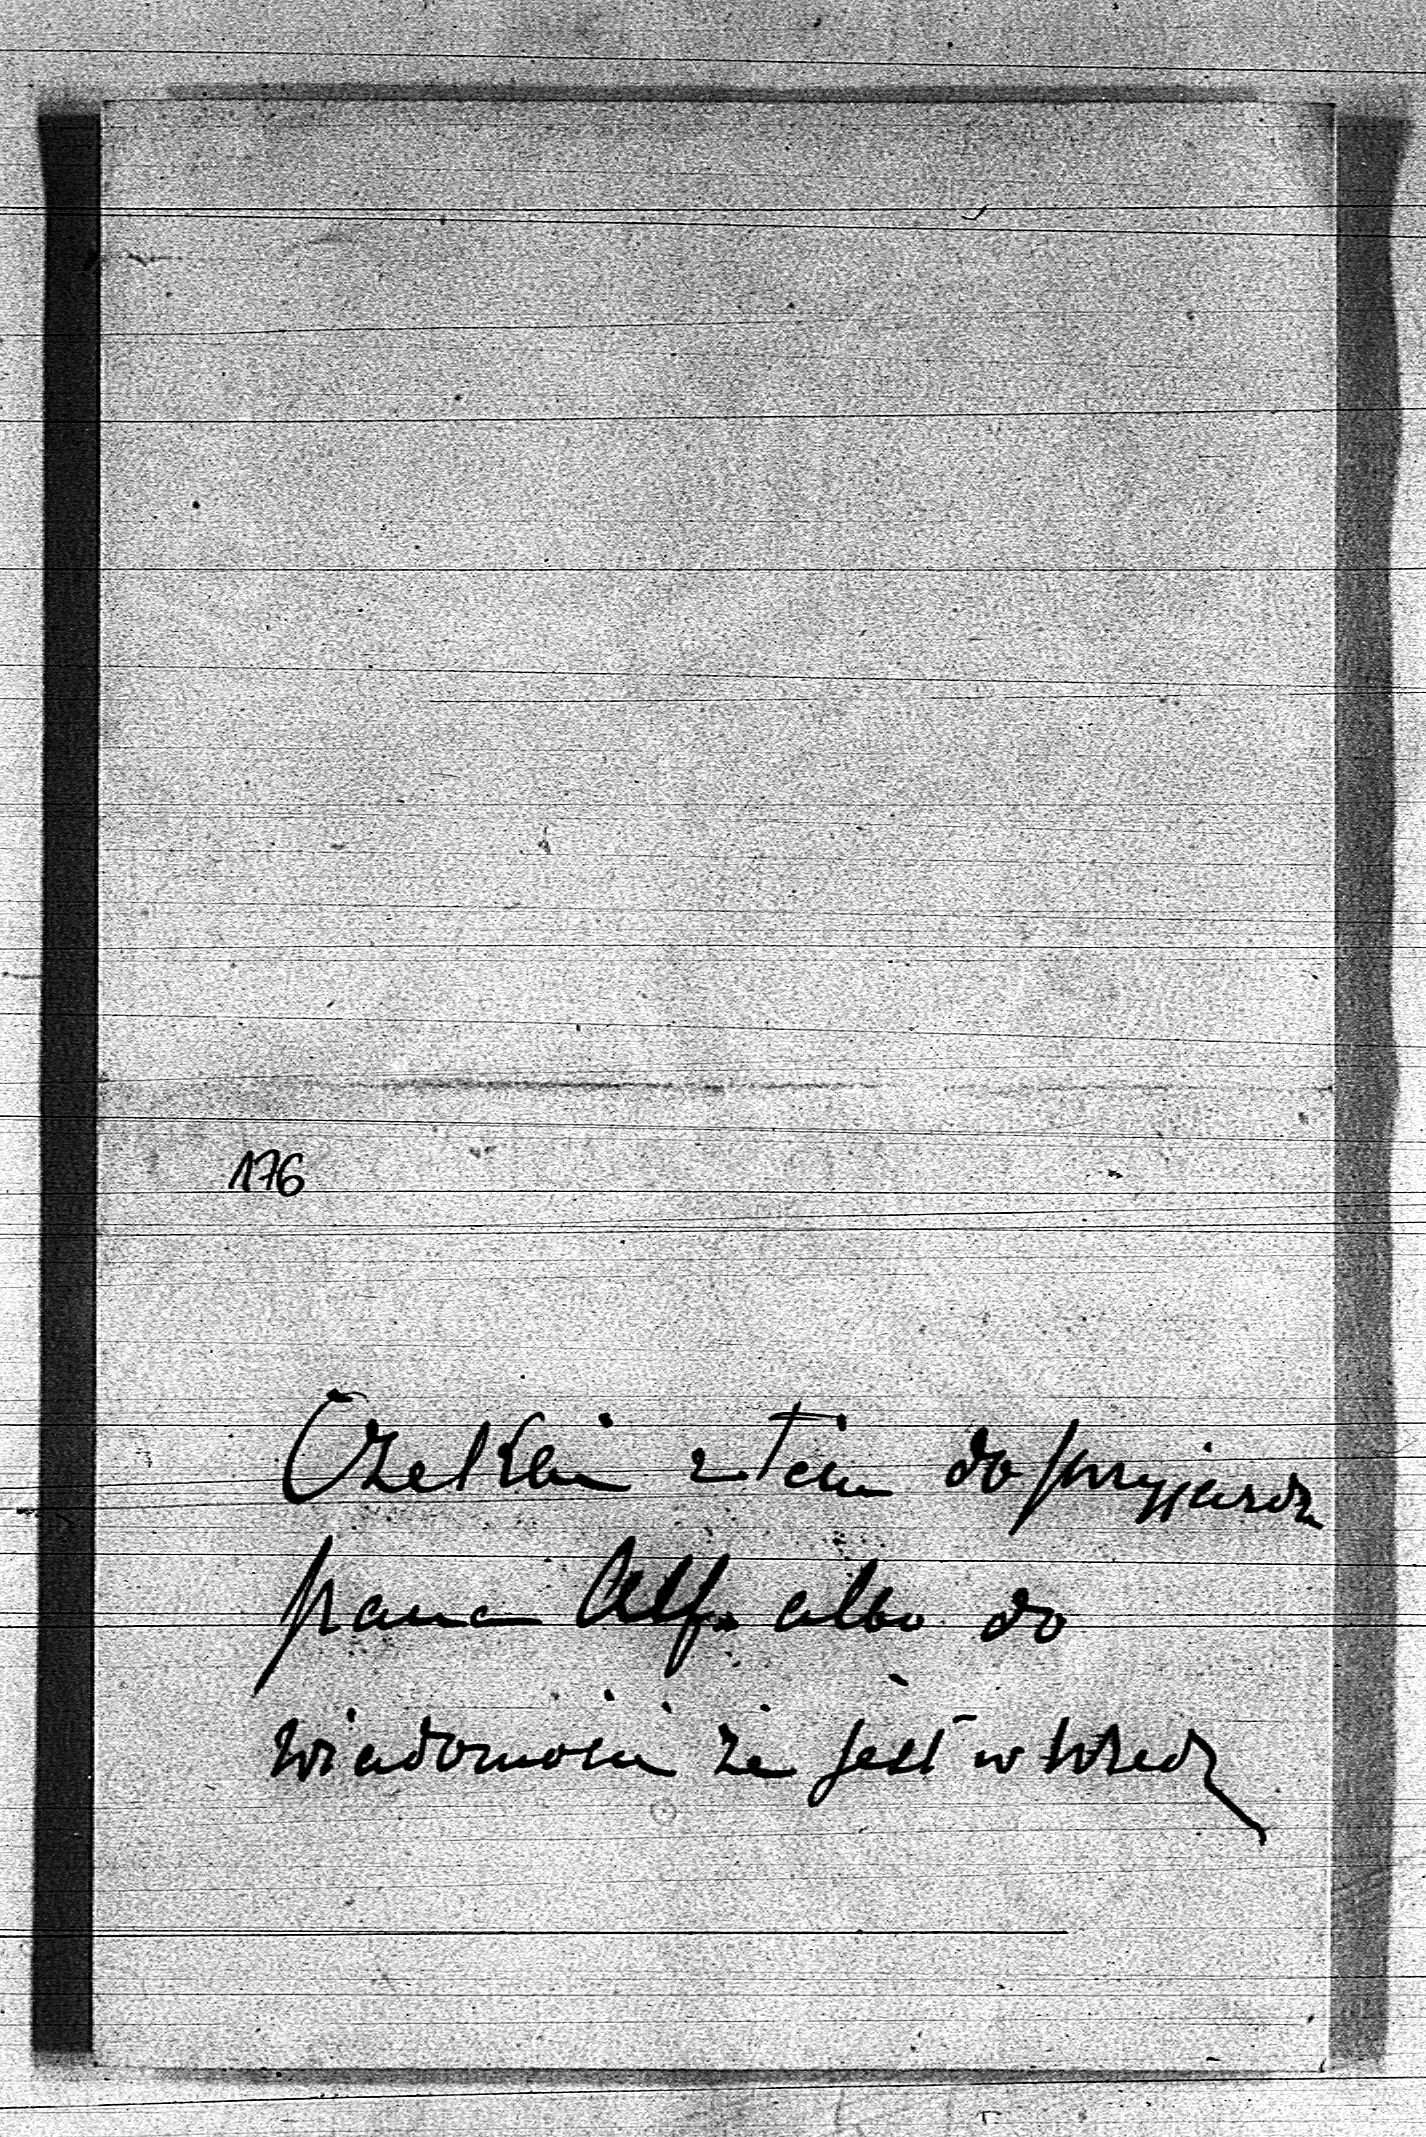 176
Czekam z tem do przyjazdu
pana Alf. albo do
wiadomości że jest w